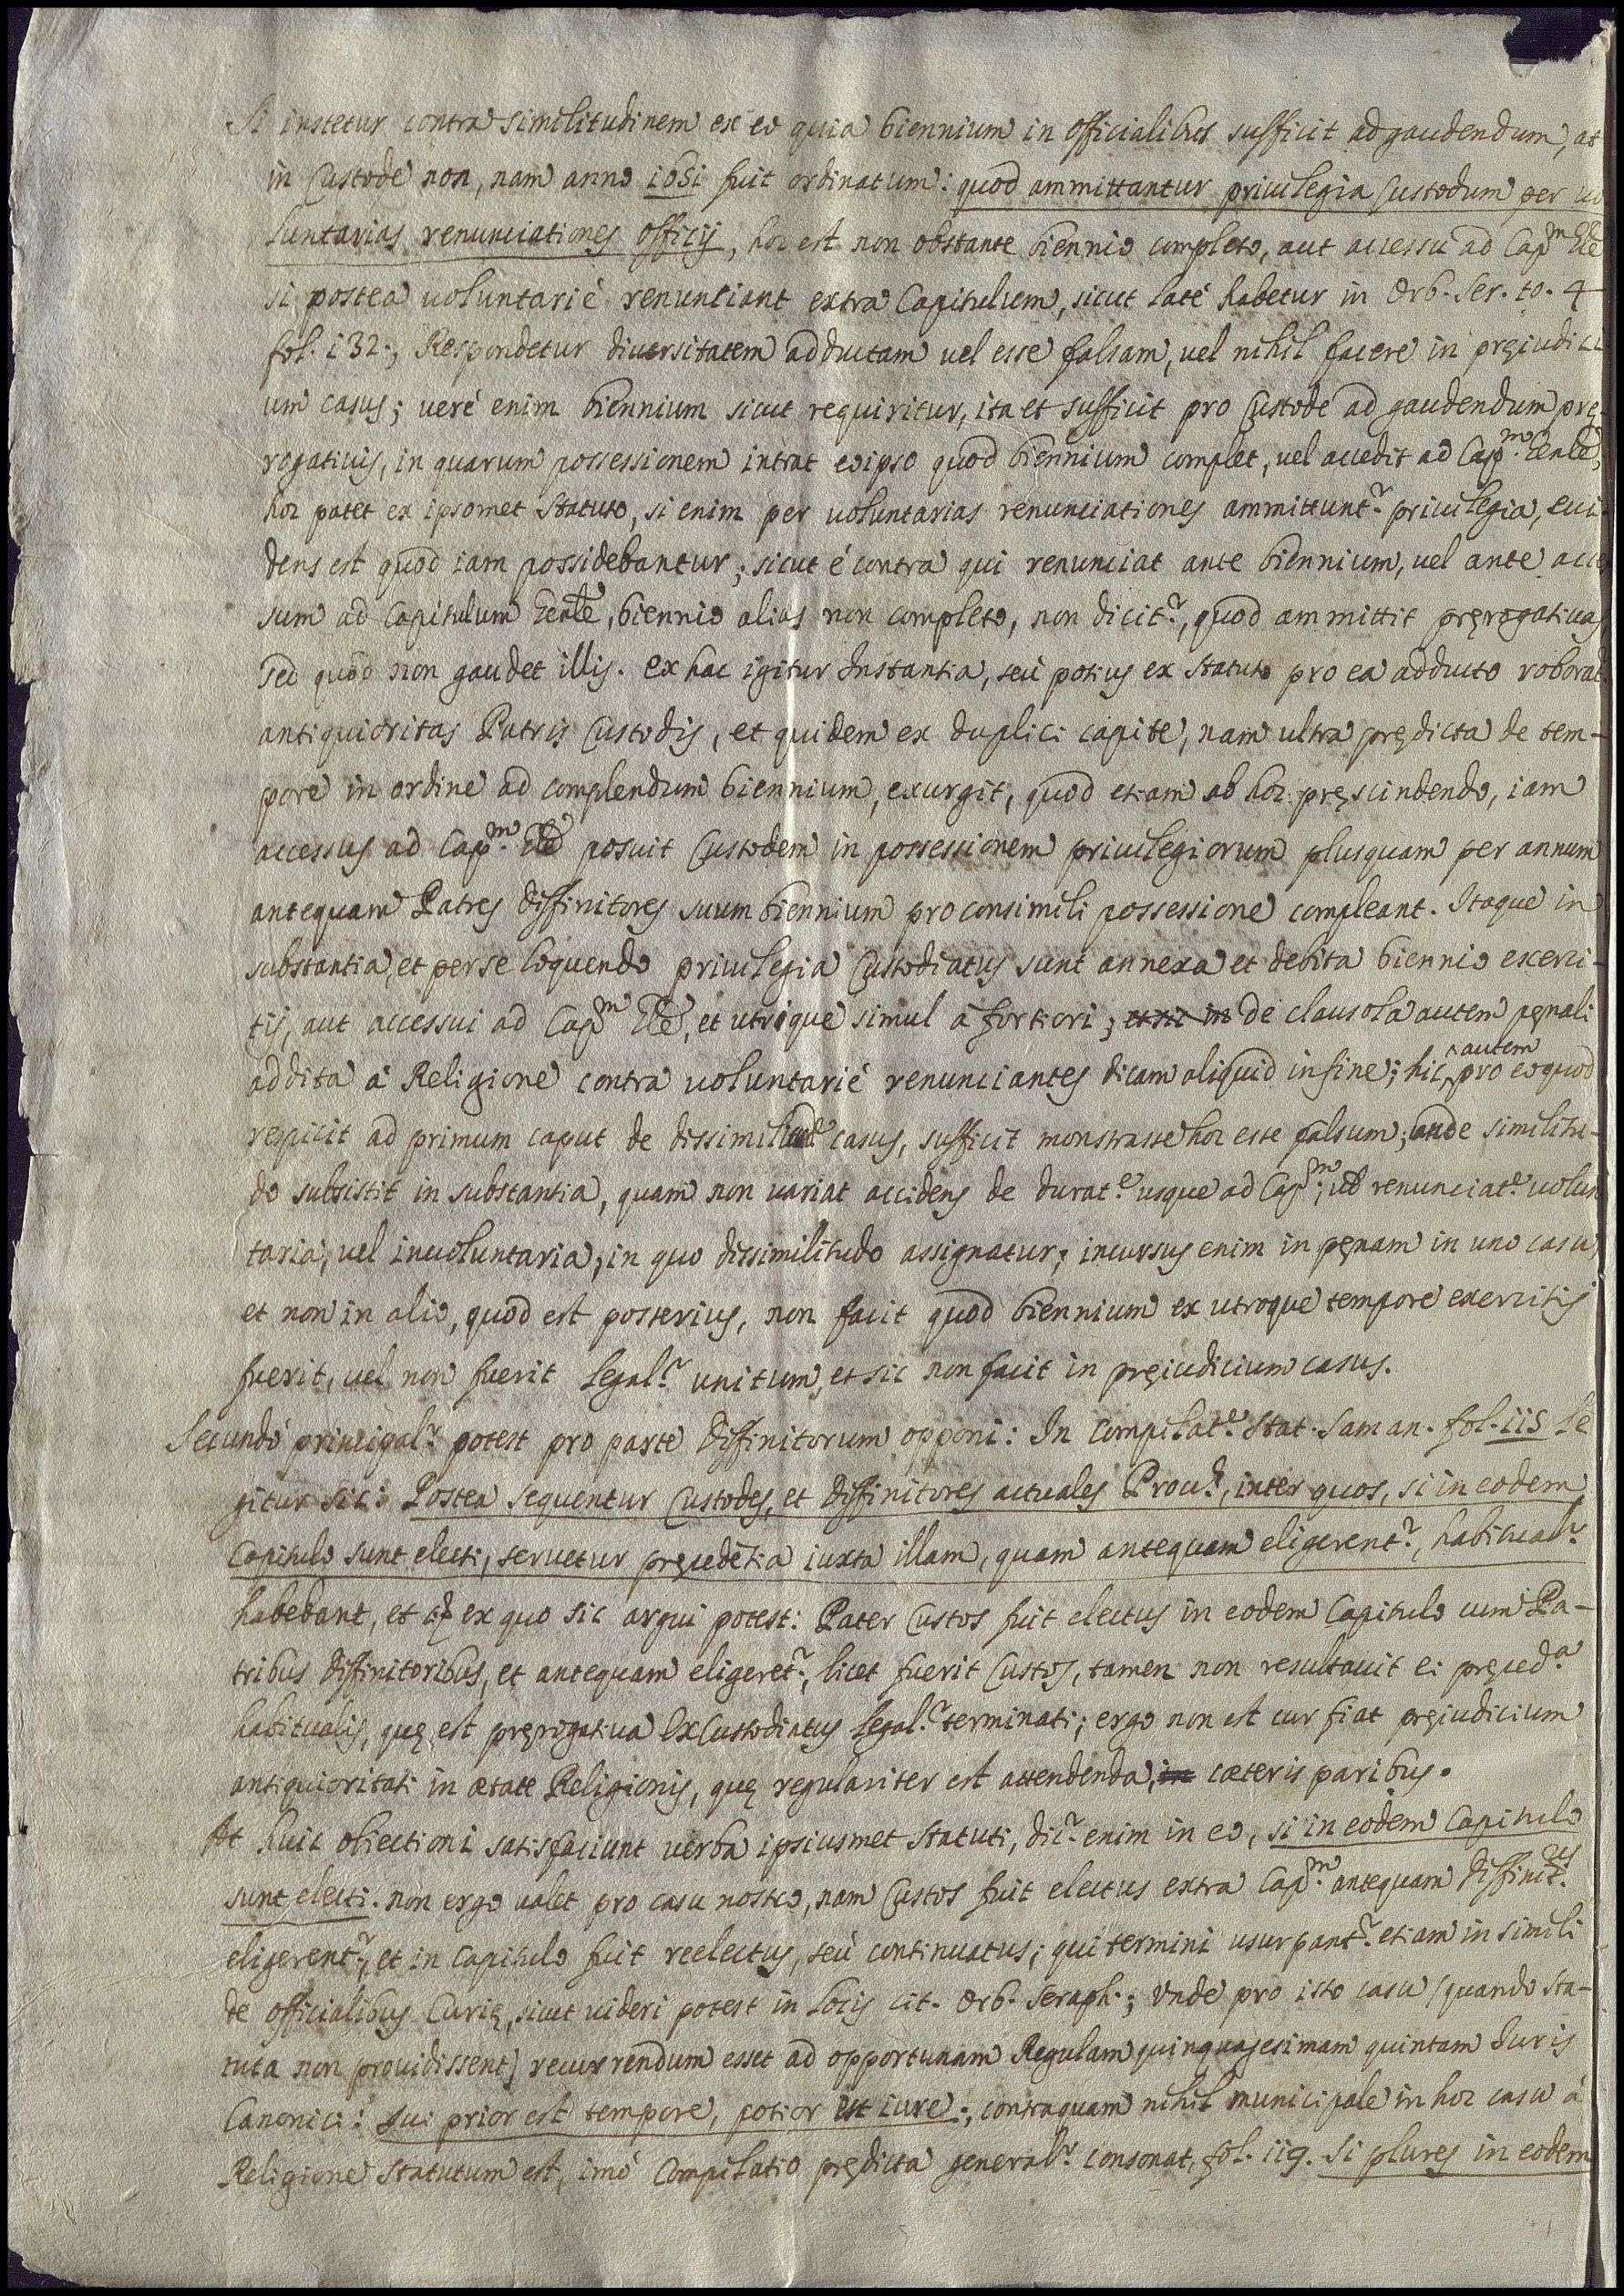 Si instetur contra similitudinem ex eo quia biennium in officialibus sufficit ad gaudendum, at
in Custode non, nam anno 1651 fuit ordinatum: quod ammittantur priuilegia Custodum per uo
luntarias renunciationes officij, hoc est non obstante biennio completo, aut accessu ad Cap.m Gle
si postea uoluntarié renunciant extra Capitulum, sicut laté habetur in Orb. Ser. to. 4
fol. 132., Respondetur diuersitatem adductam uel esse falsam, uel nihil facere in pręiudici
um casus; veré enim biennium sicut requiritur, ita et sufficit pro Custode ad gaudendum prę-
rogatiuis, in quarum possessionem intrat eoipso quod biennium complet, uel accedit ad Cap.m Genle,
hoc patet ex ipsomet Statuto, si enim per uoluntarias renunciationes ammittunt.r priuilegia, eui-
dens est quod iam possidebantur; sicut é contra qui renunciat ante biennium, uel ante acces
sum ad Capitulum Genle, biennio alias non completo, non dicit.r, quod ammittit pręrogatiuas
sed quod non gaudet illis. ex hac igitur Instantia, seú potius ex Statuto pro ea adducto roborat.
antiquioritas Patris Custodis, et quidem ex duplici capite, nam ultra prędicta de tem-
pore in ordine ad complendum biennium, exurgit, quod etiam ab hoc pręscindendo, iam
accessus ad Cap.m Gle posuit Custodem in possessionem priuilegiorum plusquam per annum
antequam Patres Diffinitores suum biennium pro consimili possessione compleant. Itaque in
substantia, et per se loquendo priuilegia Custodiatus sunt annexa et debita biennio exerci-
tij, aut accessui ad Cap.m Gle, et utrique simul á fortiori; et sic in de clausola autem pęnali
addita á Religione contra uoluntarié renunciantes dicam aliquid in fine; hic autem pro eo quod
respicit ad primum caput de dissimilitud.e casus, sufficit monstrasse hoc esse falsum; unde similitu-
do subsistit in substantia, quam non uariat accidens de durat.e usque ad Cap.m, uel renunciat.e uolun
taria, uel inuoluntaria, in quo dissimilitudo assignatur; incursus enim in pęnam in uno casu
et non in alio, quod est posterius, non facit quod biennium ex utroque tempore exercitij
fuerit, uel non fuerit legal.r unitum, et sic non facit in pręiudicium casus.
Secundó principal.r potest pro parte Diffinitorum opponi: In Compilat.e Stat. Saman. fol. 115 le
gitur sic: Postea sequentur Custodes, et Diffinitores actuales Prou.ę, inter quos, si in eodem
Capitulo sunt electi, seruetur pręcedētia iuxta illam, quam antequam eligerent.r, habitual.r
habebant, et ex quo sic argui potest: Pater Custos fuit electus in eodem Capitulo cum Pa-
tribus Diffinitoribus, et antequam eligeret.r, licet fuerit Custos, tamen non resultauit ei pręced.a
habitualis, quę est pręrogatiua ExCustodiatus legal.r terminati; ergo non est cur fiat pręiudicium
antiquioritati in ætate Religionis, quę regulariter est attendenda, in cæteris paribus.
At huic obiectioni satisfaciunt uerba ipsiusmet Statuti, dic.r enim in eo, si in eodem Capitulo
sunt electi. non ergo ualet pro casu nostro, nam Custos fuit electus extra Cap.m antequam Diffinit.es
eligerent.r, et in Capitulo fuit reelectus, seú continuatus; qui termini usurpant.r etiam in simili
de officialibus Curię, sicut uideri potest in locis cit. Orb. Seraph.; Vnde pro isto casu (quando Sta-
tuta non prouidissent) recurrendum esset ad opportunam Regulam quinquagesimam quintam Iuris
Canonici: Qui prior est tempore, potior est iure:, contra quam nihil municipale in hoc casu á
Religione statutum est, imó Compilatio prędicta general.r consonat, fol. 119. Si plures in eodem